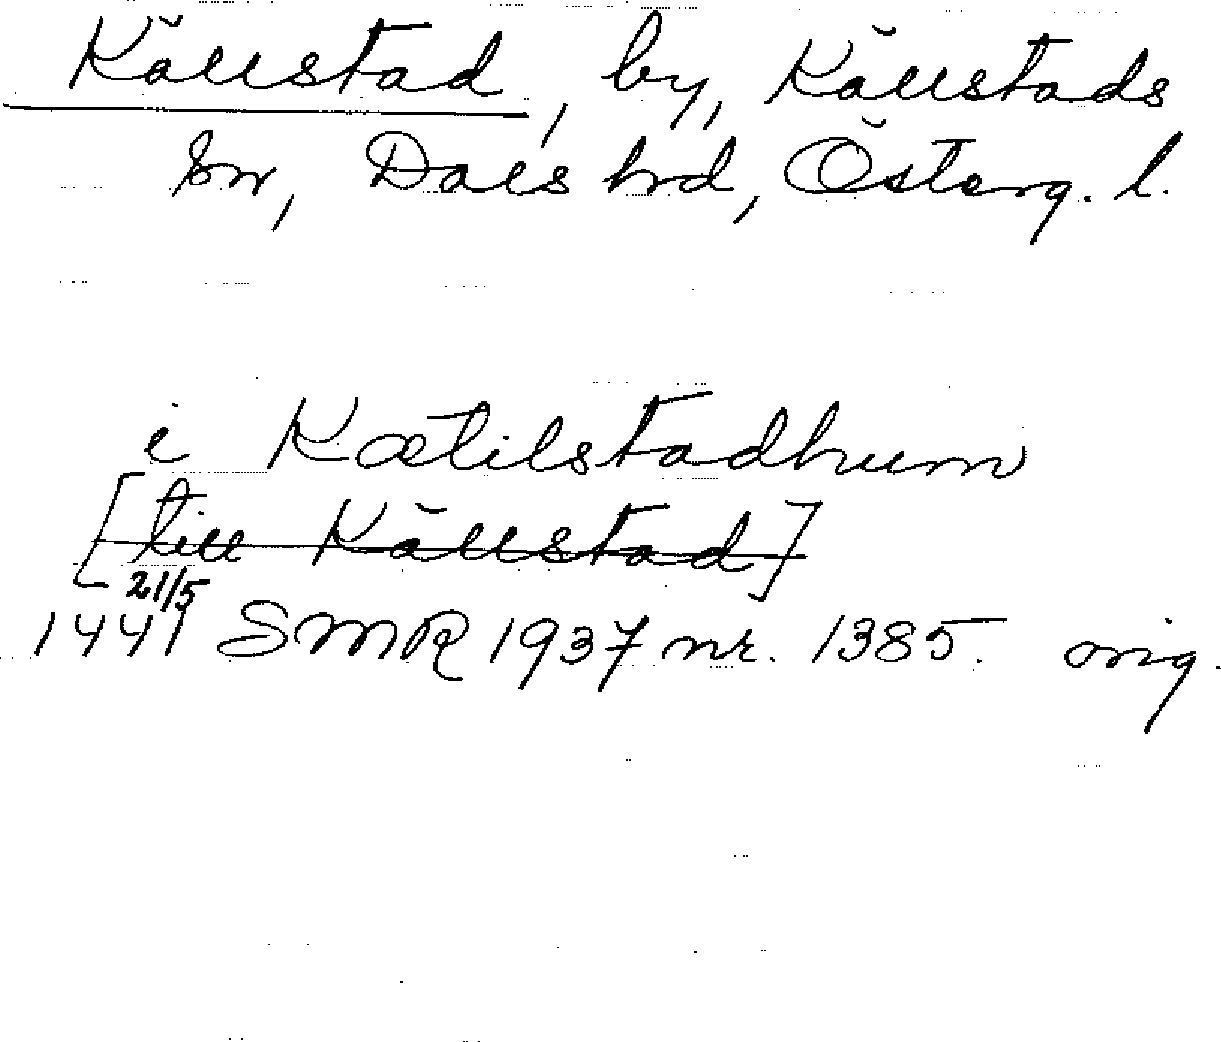 Källstad, by, Källstads
sn, Dals hrd, Österg. l.
i Kætilstadhum
[till Källstad]
21/5
1441 SMR 1937 nr. 1385. orig.